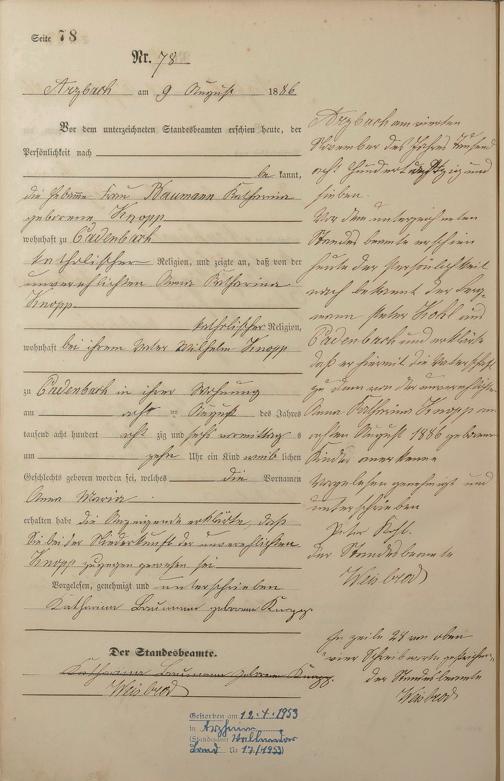 Seite 78
Nr. 78
Arzbach am 9 August 1886
Vor dem unterzeichneten Standesbeamten erschien heute, der
Persönlichkeit nach
be kannt,
die Hebamme Frau Baumann Katharina
geborene Knopp
wohnhaft zu Cadenbach
katholischer Religion, und zeigte an, daß von der
unverehlichten Anna Katharina
Knopp
katholischer Religion,
wohnhaft bei ihrem Vater Wilhelm Knopp
zu Cadenbach in ihrer Wohnung
am acht ten August des Jahres
tausend acht hundert acht zig und sechs vormittags
um zehn Uhr ein Kind weib lichen
Geschlechts geboren worden sei, welches die Vornamen
Anna Maria
erhalten habe die Anzeigende erklärte, daß
Sie bei der Niederkunft der unverehlichten
Knopp zugegen gewesen sei
Vorgelesen, genehmigt und unterschrieben
Katharina Baumann geborene Knopp
Der Standesbeamte.
Katharina Baumann geborene Knopp.
Weisbrod
Arzbach am vierten
November des Jahres tausend
acht hundert achtzig und
sieben.
Vor dem unterzeichneten
Standesbeamte erschien
heute der Persönlichkeit
nach bekannt der
Peter Kohl
Cadenbach und erklärte
daß er hiermit die Vaterschaft
zu dem von der unverehlichten
Anna Katharina Knopp am
achten August 1886 geborenen
Kinde anerkenne
Vorgelesen genehmigt und
unterschrieben
Peter Kohl.
Der Standesbeamte
Weisbrod
In Zeile 28 von oben
vier Schreibworte gestrichen,
der Standesbeamte
Weisbrod
Gestorben am 12.1.1953
in
(Standesamt Vallendar
Land Nr 17/1953)